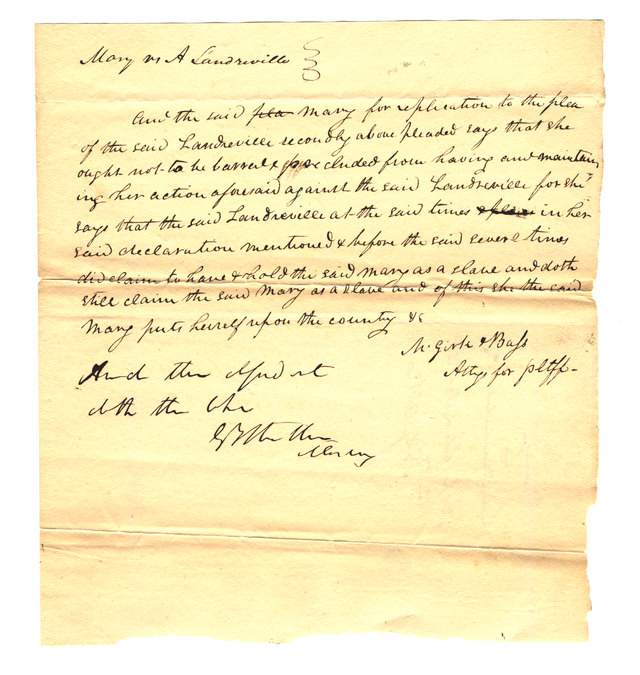 Mary vs A Landreville
And the said plea Mary for replication to the plea
of the said Landreville secondly above pleaded says that she
ought not to be barred & precluded from having and maintain
ing her action aforesaid against the said Landreville for she
says that the said Landreville at the said times & places in her
said declaration mentioned & before the said several times
did claim to have & hold the said Mary as a slave and doth
still claim the said Mary as a slave and of this she the said
Mary puts herself upon the county &c
McGirk & Bass
Attys for pltff
And the
doth the like